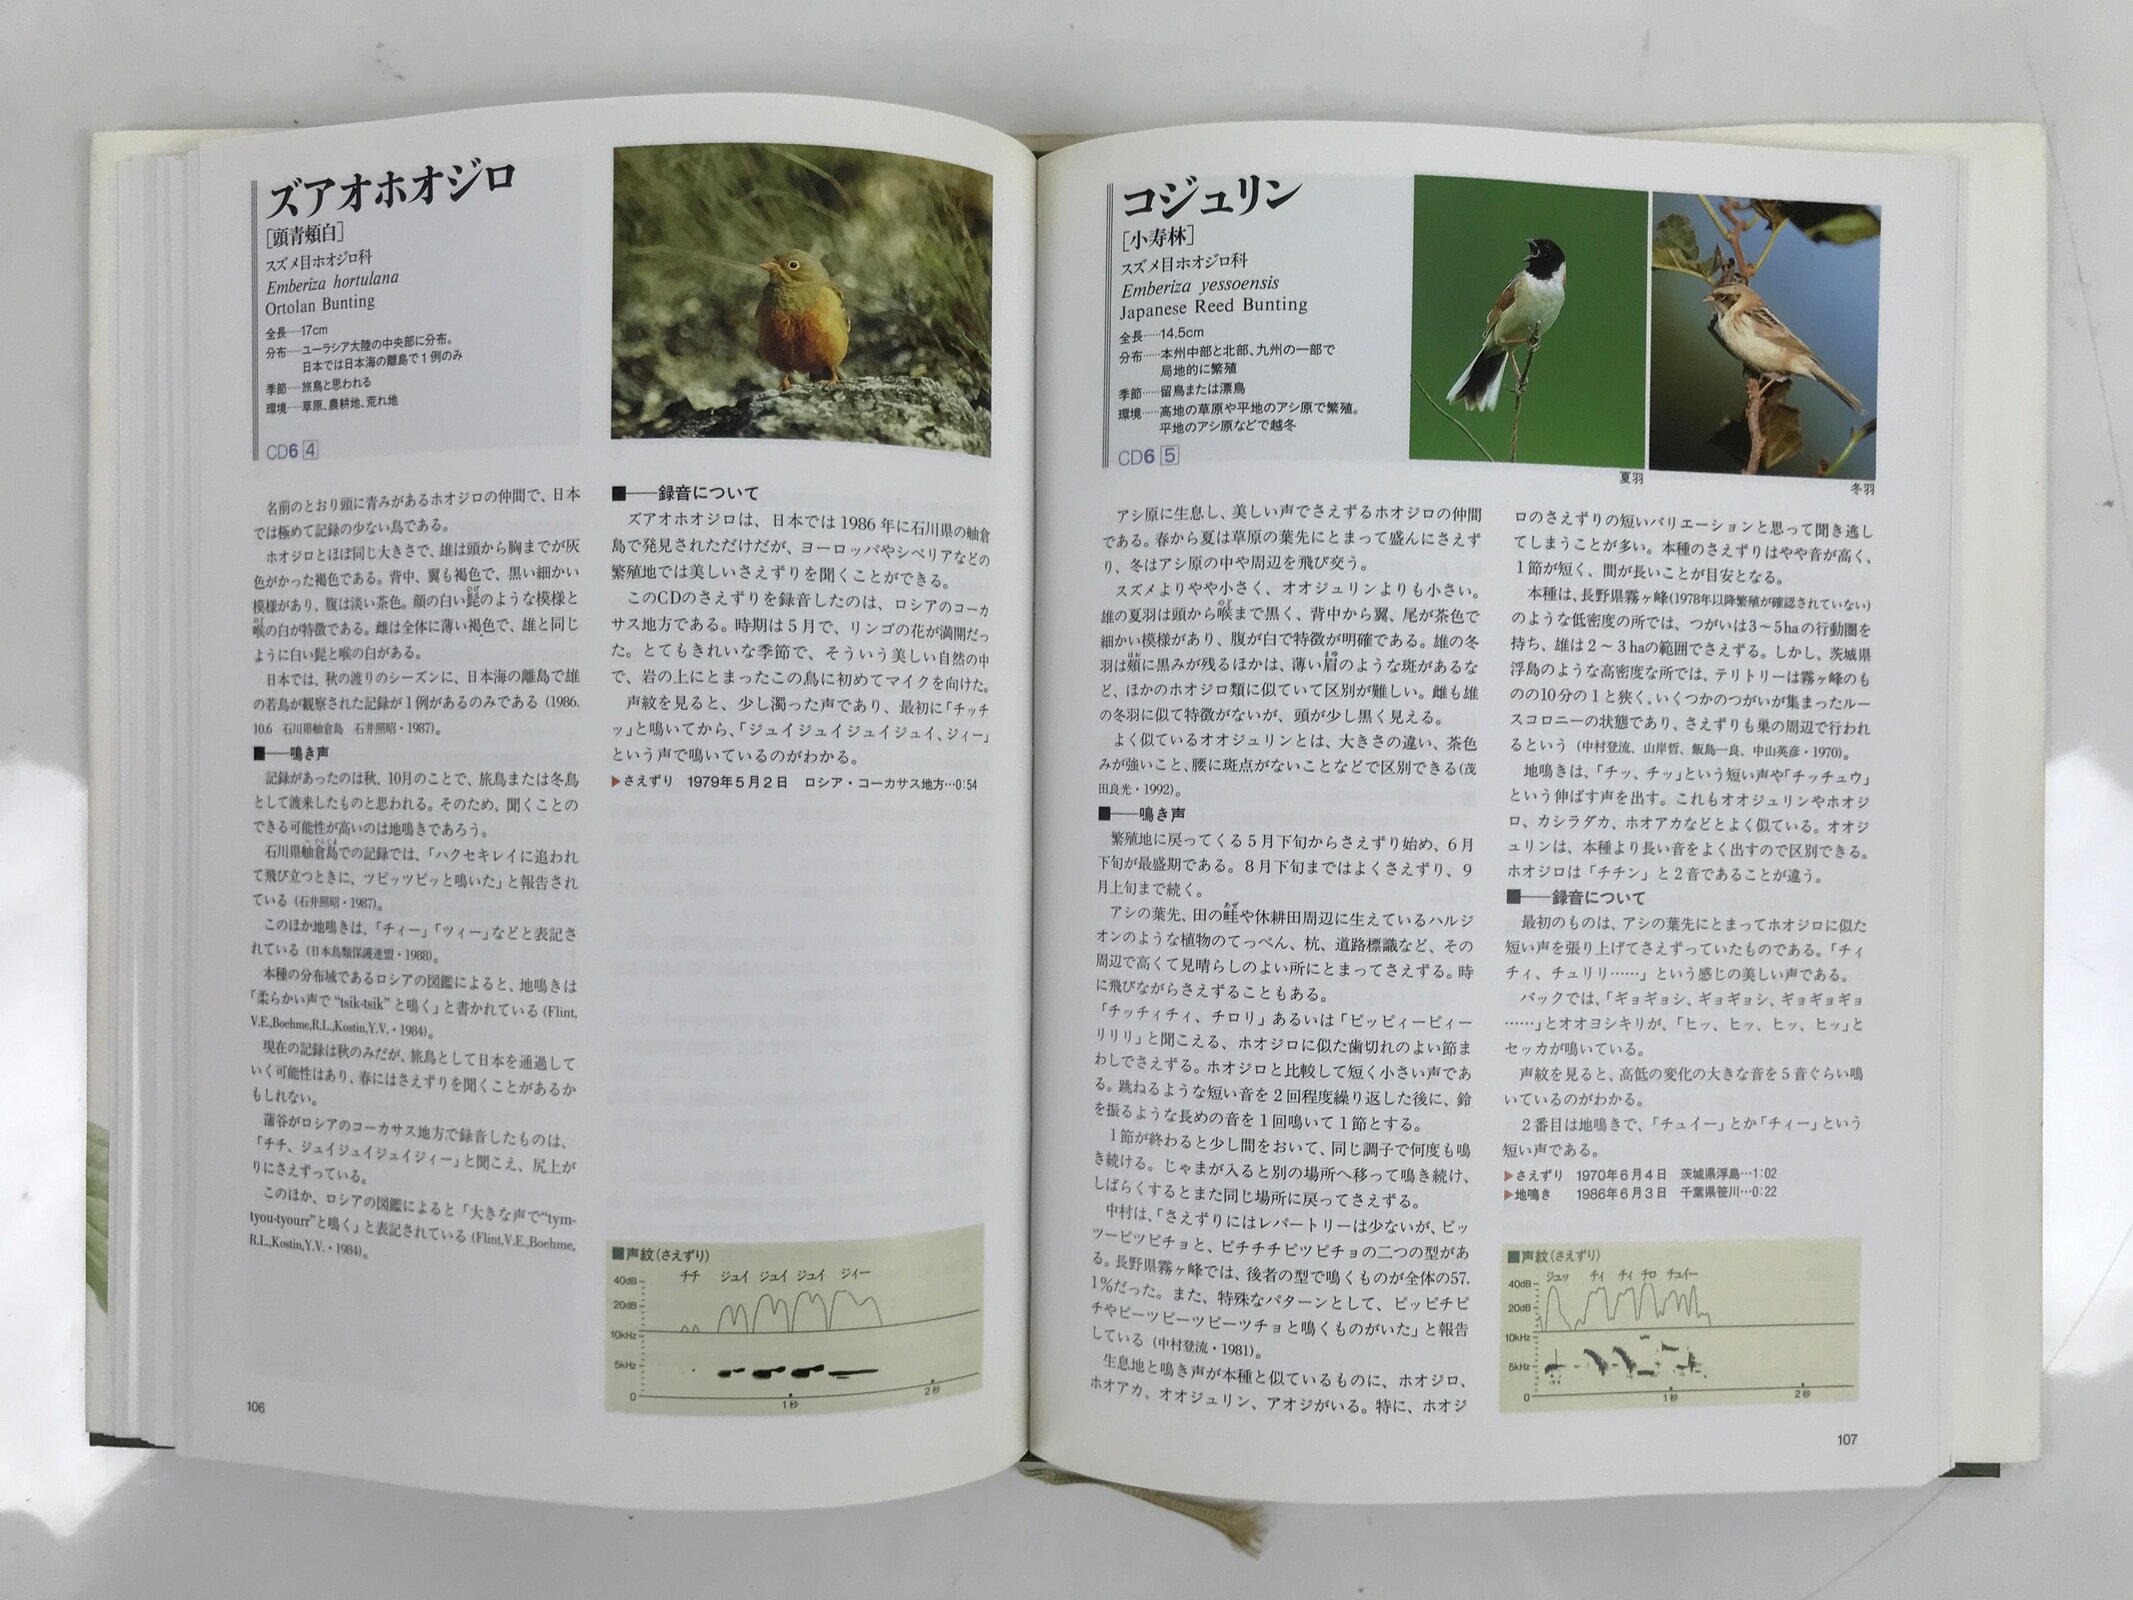 ズアオホオジロ
[頭青頬白]
スズメ目ホオジロ科
Emberiza hortulana
Ortolan Bunting
全長……17cm
分布……ユーラシア大陸の中央部に分布。
日本では日本海の離島で1例のみ
季節……旅鳥と思われる
環境……草原、農耕地、荒れ地
CD6 4
名前のとおり頭に青みがあるホオジロの仲間で、日本
では極めて記録の少ない鳥である。
ホオジロとほぼ同じ大きさで、雄は頭から胸までが灰
色がかった褐色である。背中、翼も褐色で、黒い細かい
模様があり、腹は淡い茶色。顔の白い髭のような模様と
喉の白が特徴である。雌は全体に薄い褐色で、雄と同じ
ように白い髭と喉の白がある。
日本では、秋の渡りのシーズンに、日本海の離島で雄
の若鳥が観察された記録が1例があるのみである (1986.
10.6 石川県舳倉島 石井照昭・1987)。
■――鳴き声
記録があったのは秋、10月のことで、旅鳥または冬鳥
として渡来したものと思われる。そのため、聞くことの
できる可能性が高いのは地鳴きであろう。
石川県舳倉島での記録では、「ハクセキレイに追われ
て飛び立つときに、ツピッツピッと鳴いた」と報告され
ている (石井照昭・1987)。
このほか地鳴きは、「チィー」「ツィー」などと表記さ
れている (日本鳥類保護連盟・1988)。
本種の分布域であるロシアの図鑑によると、地鳴きは
「柔らかい声で “tsik-tsik” と鳴く」と書かれている (Flint,
V.E.,Boehme,R.L.,Kostin,Y.V.・1984)。
現在の記録は秋のみだが、旅鳥として日本を通過して
いく可能性はあり、春にはさえずりを聞くことがあるか
もしれない。
蒲谷がロシアのコーカサス地方で録音したものは、
「チチ、ジュイジュイジュイジィー」と聞こえ、尻上が
りにさえずっている。
このほか、ロシアの図鑑によると「大きな声で“tym-
tyou-tyourr”と鳴く」と表記されている (Flint,V.E.,Boehme,
R.L.,Kostin,Y.V.・1984)。
106
■――録音について
ズアオホオジロは、日本では1986年に石川県の舳倉
島で発見されただけだが、ヨーロッパやシベリアなどの
繁殖地では美しいさえずりを聞くことができる。
このCDのさえずりを録音したのは、ロシアのコーカ
サス地方である。時期は5月で、リンゴの花が満開だっ
た。とてもきれいな季節で、そういう美しい自然の中
で、岩の上にとまったこの鳥に初めてマイクを向けた。
声紋を見ると、少し濁った声であり、最初に「チッチ
ッ」と鳴いてから、「ジュイジュイジュイジュイ、ジィー」
という声で鳴いているのがわかる。
▶さえずり 1979年5月2日 ロシア・コーカサス地方…0:54
■声紋(さえずり)
チチ ジュイ ジュイ ジュイ ジィー
40dB
20dB
10kHz
5kHz
0
1秒
2秒
コジュリン
[小寿林]
スズメ目ホオジロ科
Emberiza yessoensis
Japanese Reed Bunting
全長……14.5cm
分布……本州中部と北部、九州の一部で
局地的に繁殖
季節……留鳥または漂鳥
環境……高地の草原や平地のアシ原で繁殖。
平地のアシ原などで越冬
CD6 5
夏羽
冬羽
アシ原に生息し、美しい声でさえずるホオジロの仲間
である。春から夏は草原の葉先にとまって盛んにさえず
り、冬はアシ原の中や周辺を飛び交う。
スズメよりやや小さく、オオジュリンよりも小さい。
雄の夏羽は頭から喉まで黒く、背中から翼、尾が茶色で
細かい模様があり、腹が白で特徴が明確である。雄の冬
羽は頬に黒みが残るほかは、薄い眉のような斑があるな
ど、ほかのホオジロ類に似ていて区別が難しい。雌も雄
の冬羽に似て特徴がないが、頭が少し黒く見える。
よく似ているオオジュリンとは、大きさの違い、茶色
みが強いこと、腰に斑点がないことなどで区別できる(茂
田良光・1992)。
■――鳴き声
繁殖地に戻ってくる5月下旬からさえずり始め、6月
下旬が最盛期である。8月下旬まではよくさえずり、9
月上旬まで続く。
アシの葉先、田の畦や休耕田周辺に生えているハルジ
オンのような植物のてっぺん、杭、道路標識など、その
周辺で高くて見晴らしのよい所にとまってさえずる。時
に飛びながらさえずることもある。
「チッチィチィ、チロリ」あるいは「ピッピィーピィー
リリリ」と聞こえる、ホオジロに似た歯切れのよい節ま
わしでさえずる。ホオジロと比較して短く小さい声であ
る。跳ねるような短い音を2回程度繰り返した後に、鈴
を振るような長めの音を1回鳴いて1節とする。
1節が終わると少し間をおいて、同じ調子で何度も鳴
き続ける。じゃまが入ると別の場所へ移って鳴き続け、
しばらくするとまた同じ場所に戻ってさえずる。
中村は、「さえずりにはレパートリーは少ないが、ピッ
ツーピツピチョと、ピチチチピツピチョの二つの型があ
る。長野県霧ヶ峰では、後者の型で鳴くものが全体の57.
1%だった。また、特殊なパターンとして、ピッピチピ
チやピーツピーツピーツチョと鳴くものがいた」と報告
している (中村登流・1981)。
生息地と鳴き声が本種と似ているものに、ホオジロ、
ホオアカ、オオジュリン、アオジがいる。特に、ホオジ
ロのさえずりの短いバリエーションと思って聞き逃し
てしまうことが多い。本種のさえずりはやや音が高く、
1節が短く、間が長いことが目安となる。
本種は、長野県霧ヶ峰(1978年以降繁殖が確認されていない)
のような低密度の所では、つがいは3～5haの行動圏を
持ち、雄は2～3haの範囲でさえずる。しかし、茨城県
浮島のような高密度な所では、テリトリーは霧ヶ峰のも
のの10分の1と狭く、いくつかのつがいが集まったルー
スコロニーの状態であり、さえずりも巣の周辺で行われ
るという (中村登流、山岸哲、飯島一良、中山英彦・1970)。
地鳴きは、「チッ、チッ」という短い声や「チッチュウ」
という伸ばす声を出す。これもオオジュリンやホオジ
ロ、カシラダカ、ホオアカなどとよく似ている。オオジ
ュリンは、本種より長い音をよく出すので区別できる。
ホオジロは「チチン」と2音であることが違う。
■――録音について
最初のものは、アシの葉先にとまってホオジロに似た
短い声を張り上げてさえずっていたものである。「チィ
チィ、チュリリ……」という感じの美しい声である。
バックでは、「ギョギョシ、ギョギョシ、ギョギョギョ
……」とオオヨシキリが、「ヒッ、ヒッ、ヒッ、ヒッ」と
セッカが鳴いている。
声紋を見ると、高低の変化の大きな音を5音ぐらい鳴
いているのがわかる。
2番目は地鳴きで、「チュイー」とか「チィー」という
短い声である。
▶さえずり 1970年6月4日 茨城県浮島…1:02
▶地鳴き 1986年6月3日 千葉県笹川…0:22
■声紋(さえずり)
ジュッ チィ チィ チロ チュイー
40dB
20dB
10kHz
5kHz
0
1秒
2秒
107